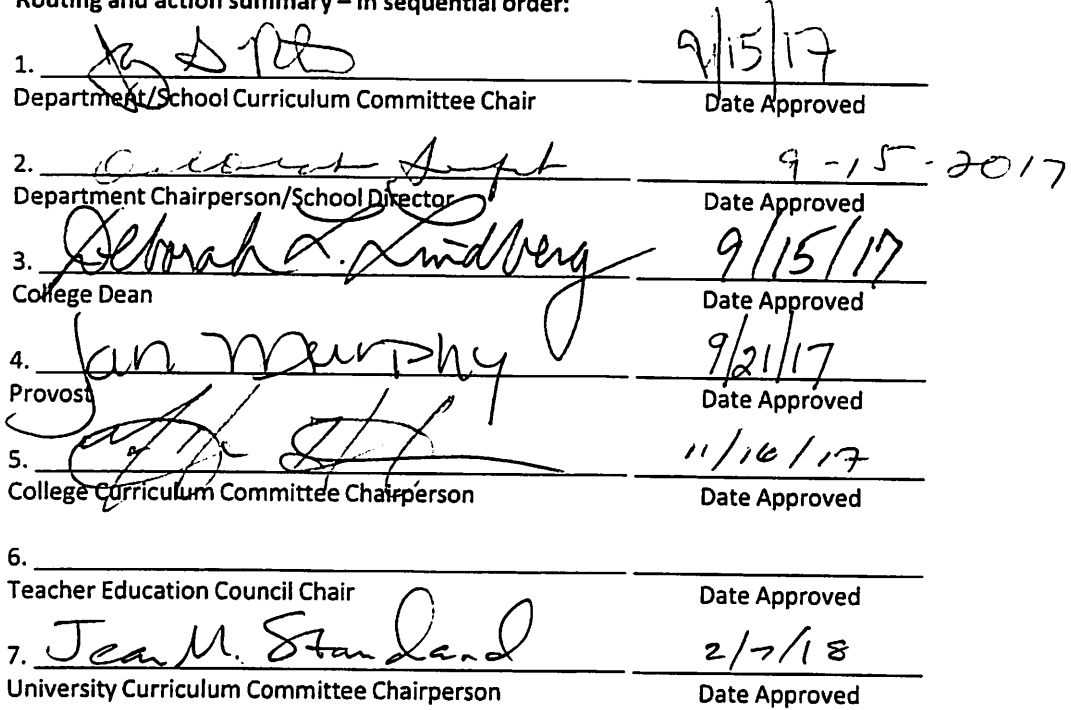 Routing and action summary – in sequential order:
1. 9/15/17
Department/School Curriculum Committee Chair Date Approved
2. 9-15-2017
Department Chairperson/School Director Date Approved
3. Deborah L. Lindberg 9/15/17
College Dean Date Approved
4. Jan Murphy 9/21/17
Provost Date Approved
5. 11/16/17
College Curriculum Committee Chairperson Date Approved
6.
Teacher Education Council Chair Date Approved
7. Jean M. Standard 2/7/18
University Curriculum Committee Chairperson Date Approved